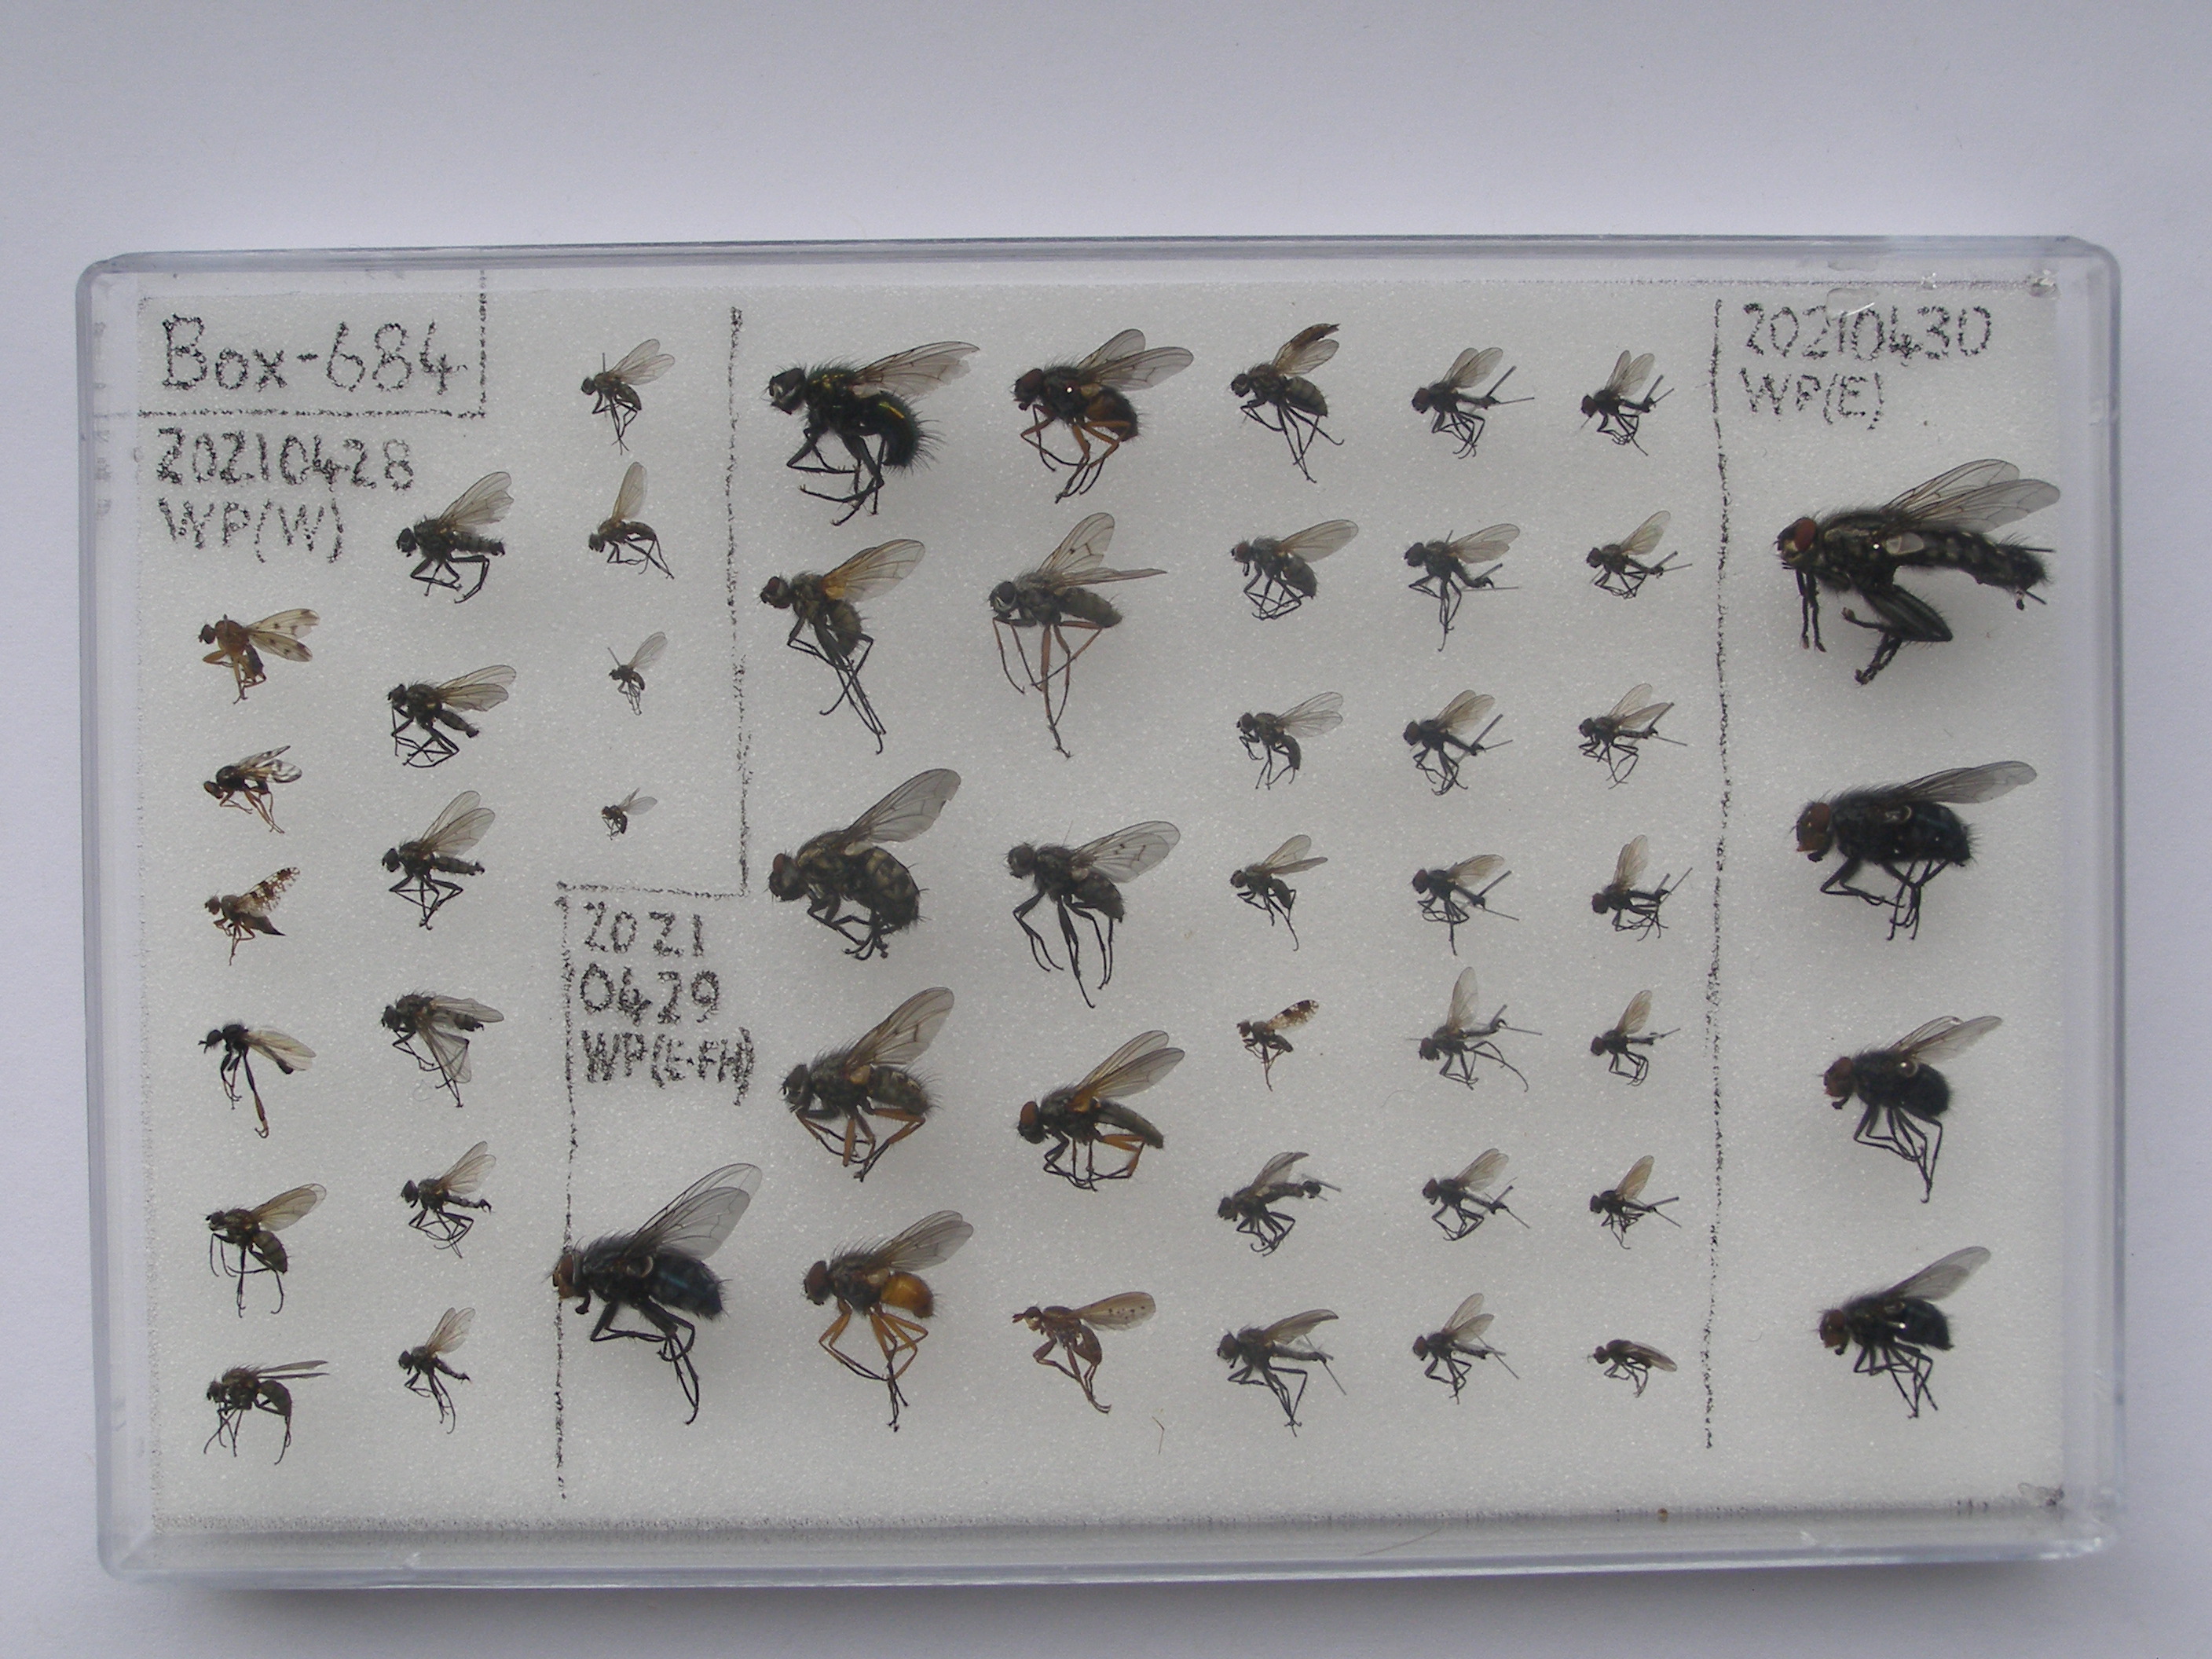 Box-684
20210428
WP(W)
2021
0429
WP(E-FH)
20210430
WP(E)